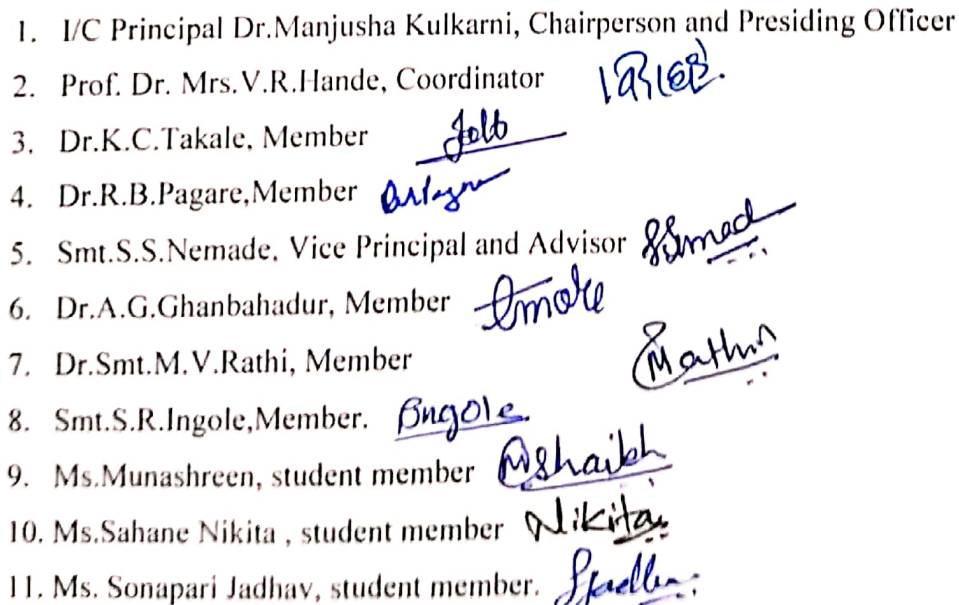 1. I/C Principal Dr.Manjusha Kulkarni, Chairperson and Presiding Officer
2. Prof. Dr. Mrs.V.R.Hande, Coordinator
3. Dr.K.C.Takale, Member
4. Dr.R.B.Pagare,Member
5. Smt.S.S.Nemade, Vice Principal and Advisor
6. Dr.A.G.Ghanbahadur, Member
7. Dr.Smt.M.V.Rathi, Member
8. Smt.S.R.Ingole,Member. Ingole
9. Ms.Munashreen, student member
10. Ms.Sahane Nikita , student member Nikita
11. Ms. Sonapari Jadhav, student member.